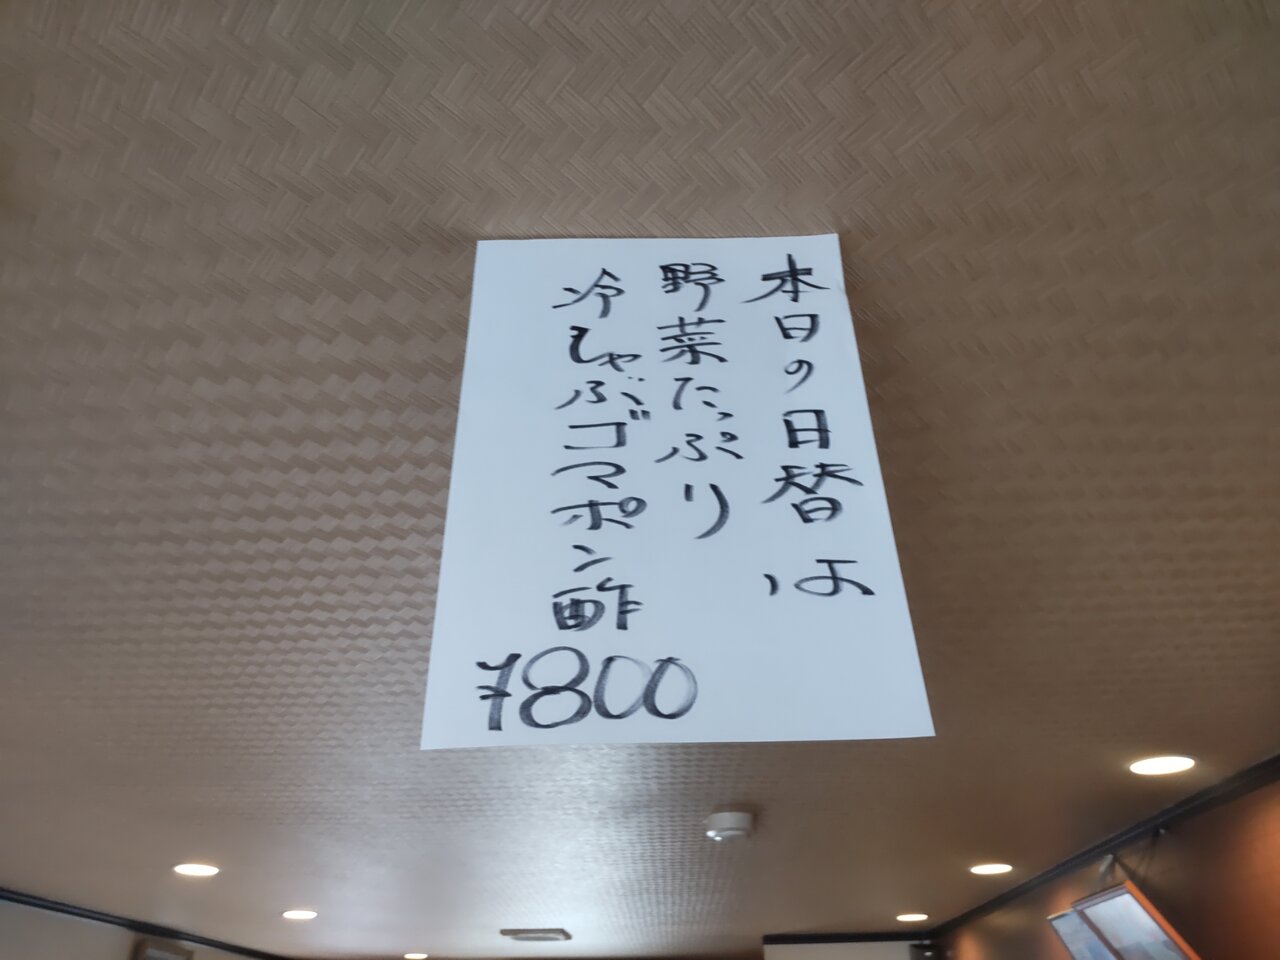 本日の日替は
野菜たっぷり
冷しゃぶゴマポン酢
¥800